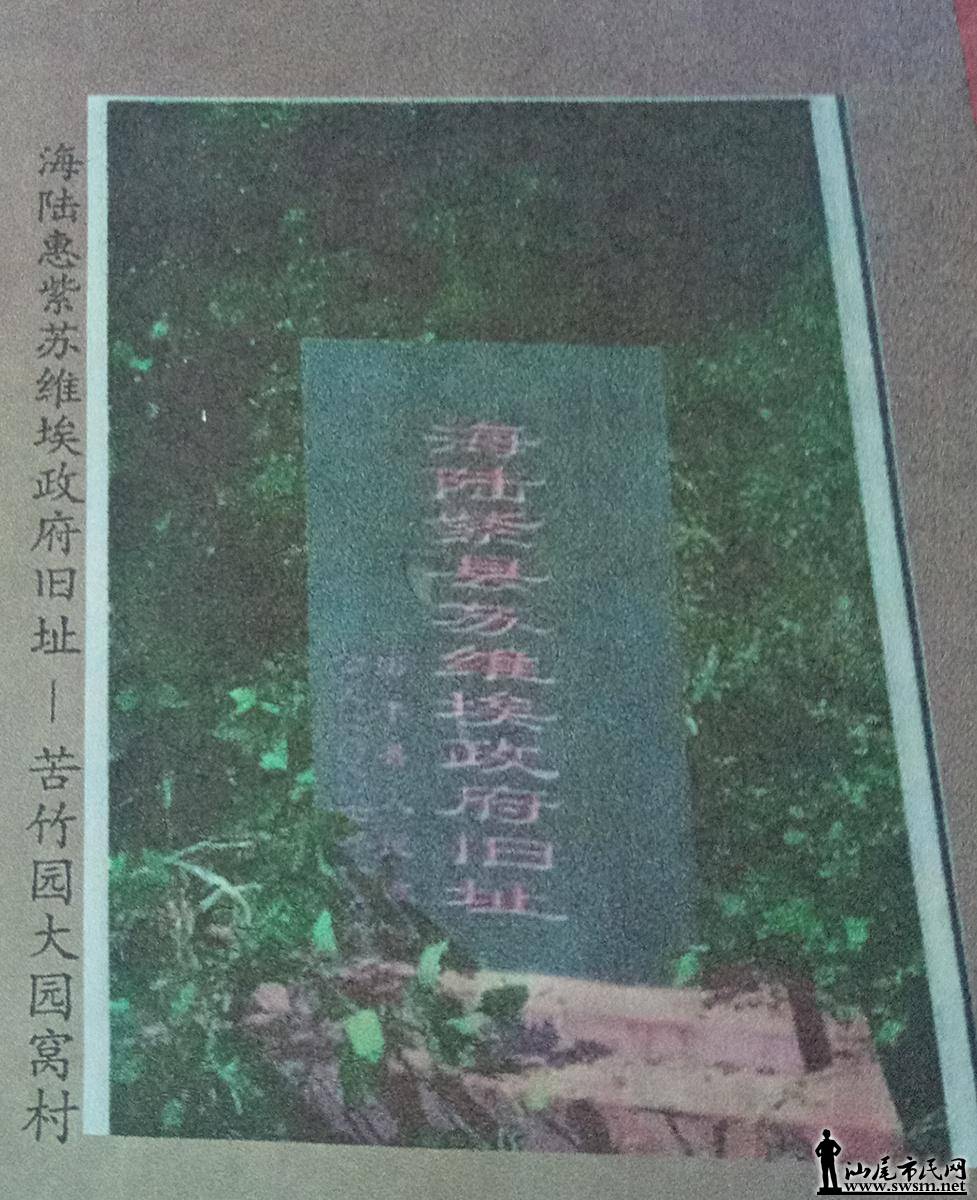 海陆惠紫苏维埃政府旧址—苦竹园大园窝村
海陆紫县苏维埃政府旧址
汕尾市民网
www.swsm.net